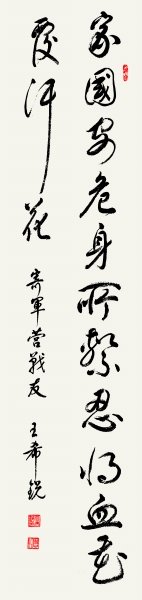 家國安危身所繫忍将血花
覆汗花
寄軍營戰友 王希銳